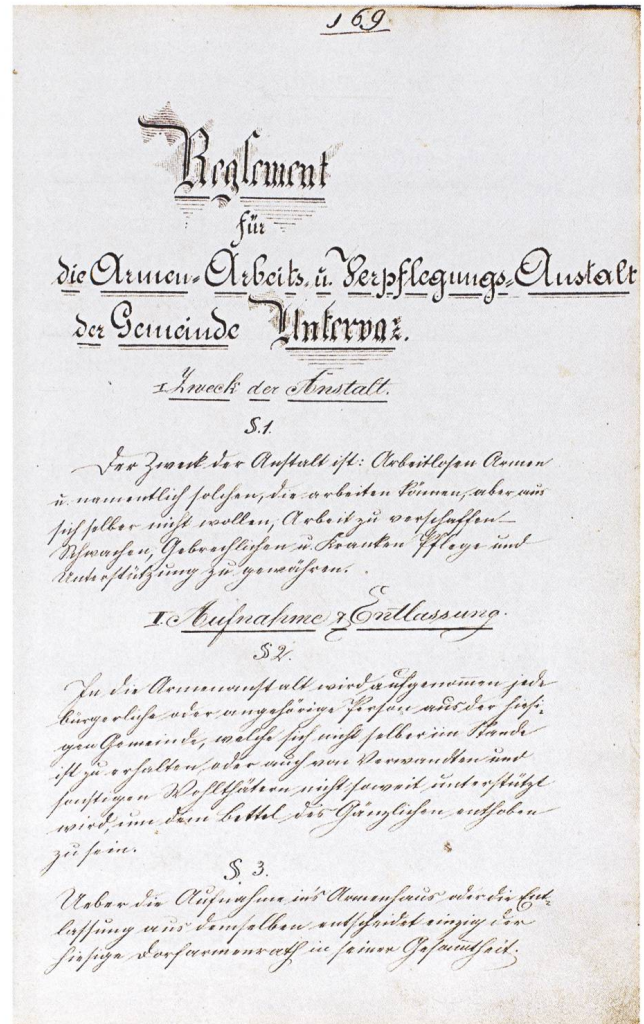 169
Reglement
für
die Armen-Arbeits- u. Verpflegungs-Anstalt
der Gemeinde Untervaz.
I. Zweck der Anstalt.
§. 1.
Der Zweck der Anstalt ist: Arbeitlosen Armen
u. namentlich solchen, die arbeiten können, aber aus
sich selber nicht wollen, Arbeit zu verschaffen –
Schwachen, Gebrechlichen u. Kranken Pflege und
Unterstützung zu gewähren.
I. Aufnahme & Entlassung.
§ 2.
In die Armenanstalt wird aufgenommen jede
bürgerliche oder angehörige Person aus der hiesi-
gen Gemeinde, welche sich nicht selber im Stande
ist zu erhalten oder auch von Verwandten und
sonstigen Wohlthätern nicht soweit unterstützt
wird, um dem Bettel des Gänzlichen enthoben
zu sein.
§ 3.
Ueber die Aufnahme ins Armenhaus oder die Ent-
lassung aus demselben entscheidet einzig der
hiesige Dorfarmenrath in seiner Gesammtheit.